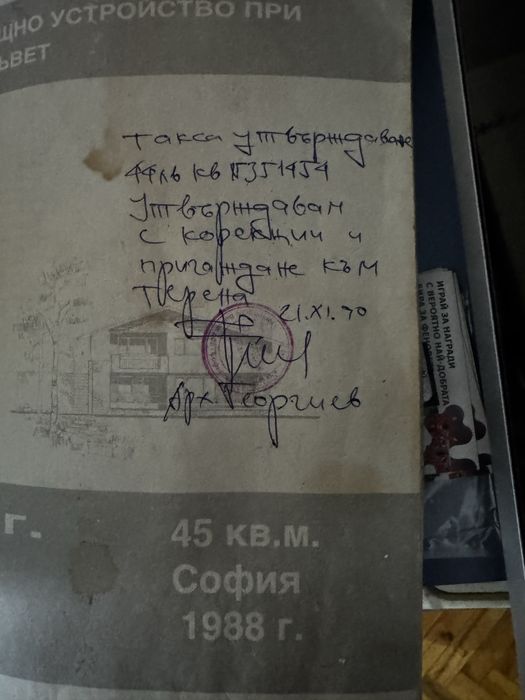 ЩНО УСТРОЙСТВО ПРИ
ЪВЕТ
такса утвърждаване
44лв кв
Утвърждавам
с корекции и
пригаждане към
терена
21.XI.90
Арх Георгиев
г.
45 кв.м.
София
1988 г.
ИГРАЙ ЗА НАГРАДИ
С ВЕРОЯТНО НАЙ-ДОБРАТА
БИРА ЗА